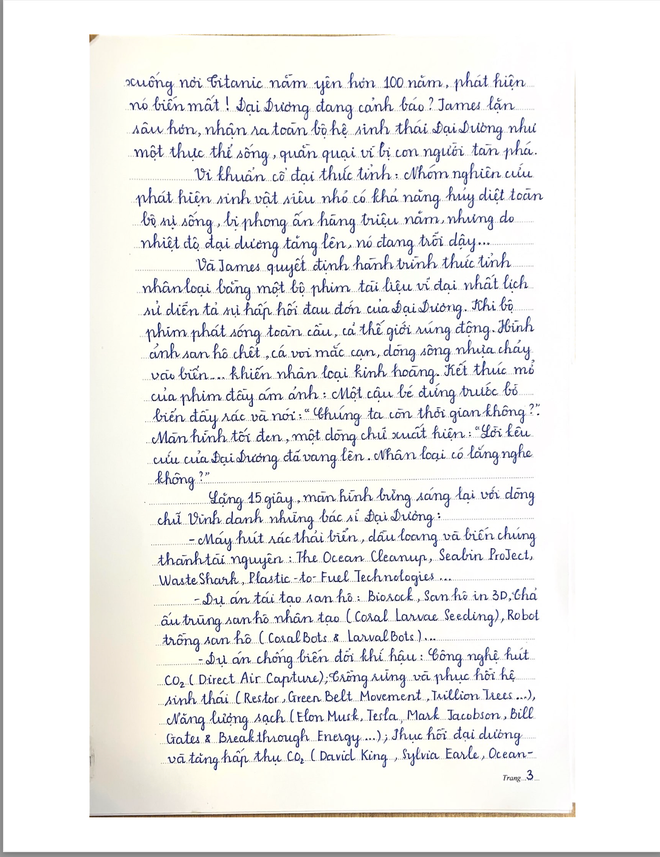 xuống nơi Titanic nằm yên hơn 100 năm, phát hiện
nó biến mất! Đại Dương đang cảnh báo? James lặn
sâu hơn, nhận ra toàn bộ hệ sinh thái Đại Dương như
một thực thể sống, quằn quại vì bị con người tàn phá.
Vi khuẩn cổ đại thức tỉnh: Nhóm nghiên cứu
phát hiện sinh vật siêu nhỏ có khả năng hủy diệt toàn
bộ sự sống, bị phong ấn hàng triệu năm, nhưng do
nhiệt độ đại dương tăng lên, nó đang trỗi dậy...
Và James quyết định hành trình thức tỉnh
nhân loại bằng một bộ phim tài liệu vĩ đại nhất lịch
sử diễn tả sự hấp hối đau đớn của Đại Dương. Khi bộ
phim phát sóng toàn cầu, cả thế giới rúng động. Hình
ảnh san hô chết, cá voi mắc cạn, dòng sông nhựa chảy
vào biển.... khiến nhân loại kinh hoàng. Kết thúc mở
của phim đầy ám ảnh: Một cậu bé đứng trước bờ
biển đầy rác và nói: "Chúng ta còn thời gian không?".
Màn hình tối đen, một dòng chữ xuất hiện: "Lời kêu
cứu của Đại Dương đã vang lên. Nhân loại có lắng nghe
không?"
Lặng 15 giây, màn hình bừng sáng lại với dòng
chữ Vinh danh những bác sĩ Đại Dương:
- Máy hút rác thải biển, dầu loang và biến chúng
thành tài nguyên: The Ocean Cleanup, Seabin ProJect,
WasteShark, Plastic-to-Fuel Technologies ...
- Dự án tái tạo san hô: Biorock, San hô in 3D, Thả
ấu trùng san hô nhân tạo (Coral Larvae Seeding), Robot
trồng san hô (CoralBots & LarvalBots)...
- Dự án chống biến đổi khí hậu: Công nghệ hút
CO₂ (Direct Air Capture); Trồng rừng và phục hồi hệ
sinh thái (Restor, Green Belt Movement, Trillion Trees ...),
Năng lượng sạch (Elon Musk, Tesla, Mark Jacobson, Bill
Gates & Breakthrough Energy ...); Phục hồi đại dương
và tăng hấp thụ CO₂ (David King, Sylvia Earle, Ocean-
Trang 3